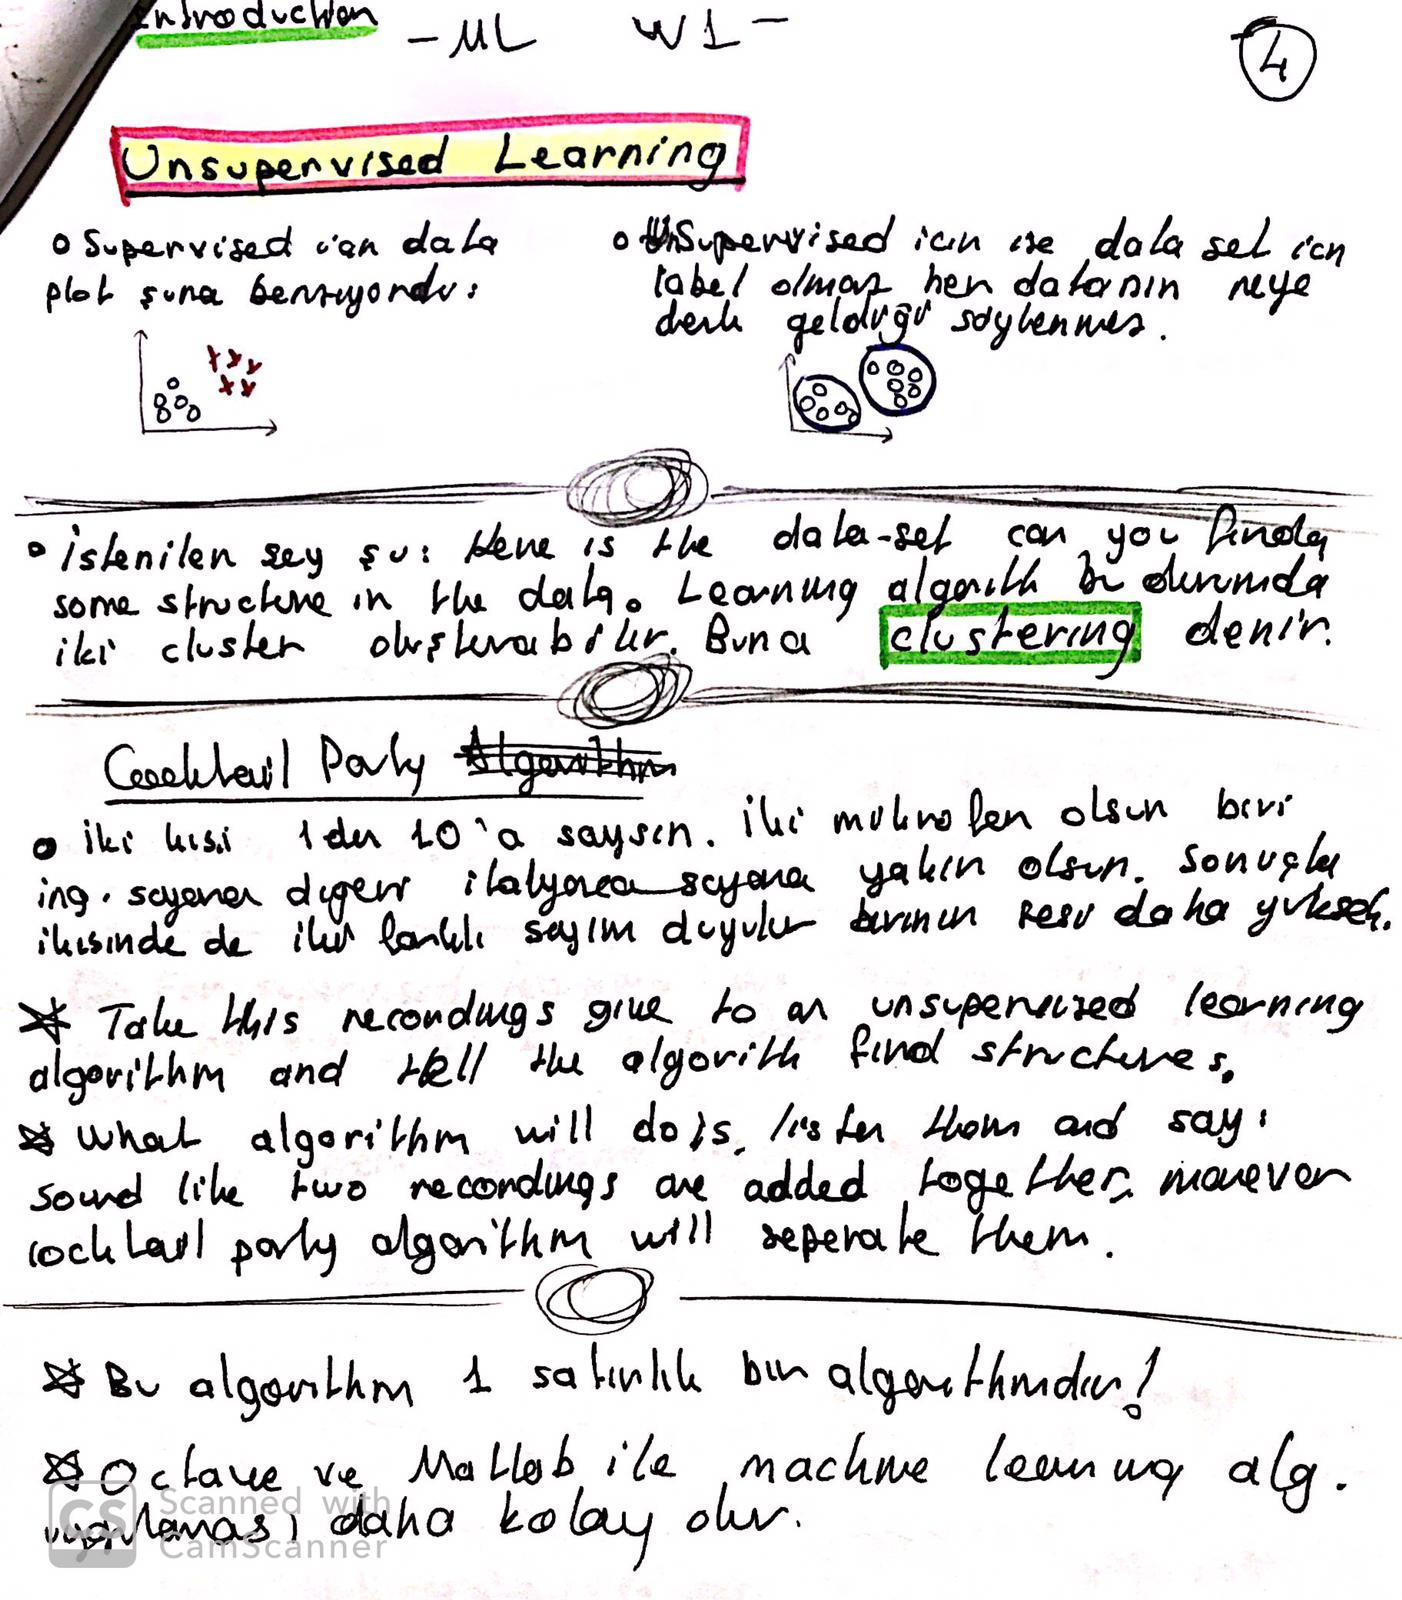 Introduction - ML W1 -
4
Unsupervised Learning
o Supervised için data
plot şuna benziyordu:
o Unsupervised icin ise data set icn
label olmaz her datanın neye
denk geldiği söylenmez.
o İstenilen şey şu: Here is the data-set can you find
some structure in the data. Learning algorith bu durumda
iki cluster oluşturabilir. Buna clustering denir.
Cocktail Party Algorithm
o iki kişi 1 den 10'a saysın. İki mikrofon olsun biri
ing. sayana diğeri italyanca sayana yakın olsun. Sonuçta
ikisinde de iki farklı sayım duyulur birinin sesi daha yüksek.
Take this recordings give to an unsupervised learning
algorithm and tell the algorith find structures.
What algorithm will do is, listen them and say:
Sound like two recordings are added together, morever
cocktail party algorithm will seperate them.
Bu algorithm 1 satırlık bir algorithmdır!
Octave ve Matlab ile machine learning alg.
uygulaması daha kolay olur.
CS Scanned with
CamScanner